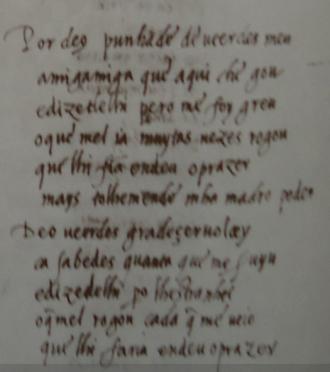 Por deꝯ punhade de ueerdes meu
amigamiga que aqui che gou
edizedelhi pero me foy greu
oque mel ia muytas uezes rogou
que lhi faria endeu oprazer
mays tolhemende mha madre poder
Deo ueerdes gradeçeruoley
ca sabedes quanta que me
edizedelhi po lhestranhei
oq̄mel rogou cada q̄ me ueio
que lhi faria endeu oprazer